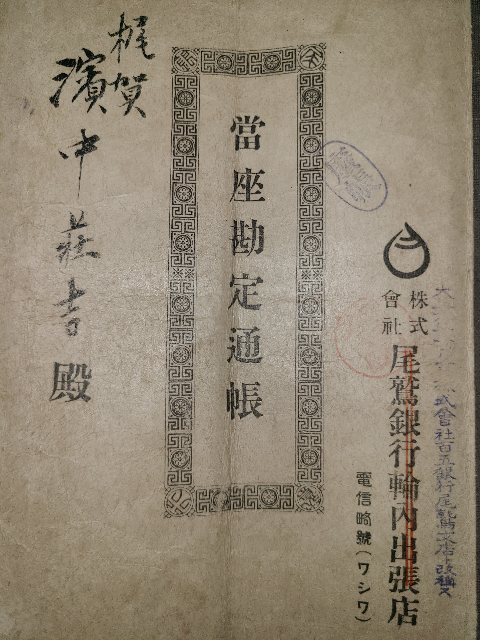 株式
會社
尾鷲銀行輪内出張店
電信略號(ワシワ)
當座勘定通帳
梶賀
濱中荘吉殿
株式會社百五銀行尾鷲支店ト改稱ス